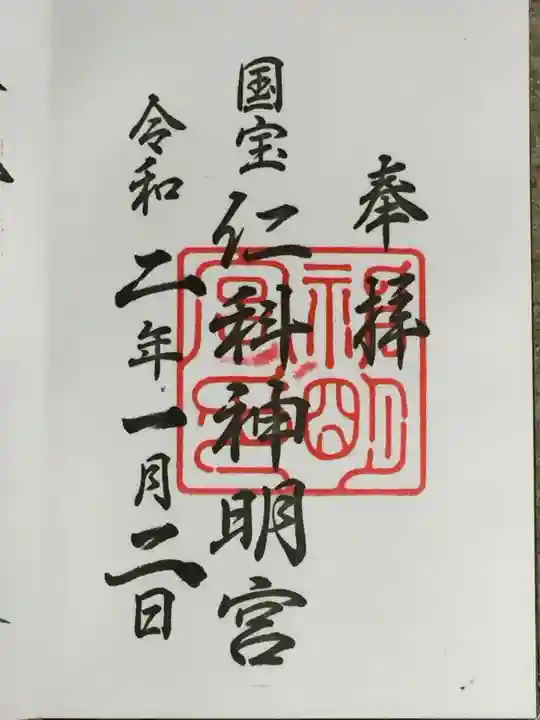 奉拝
国宝 仁科神明宮
令和二年一月二日